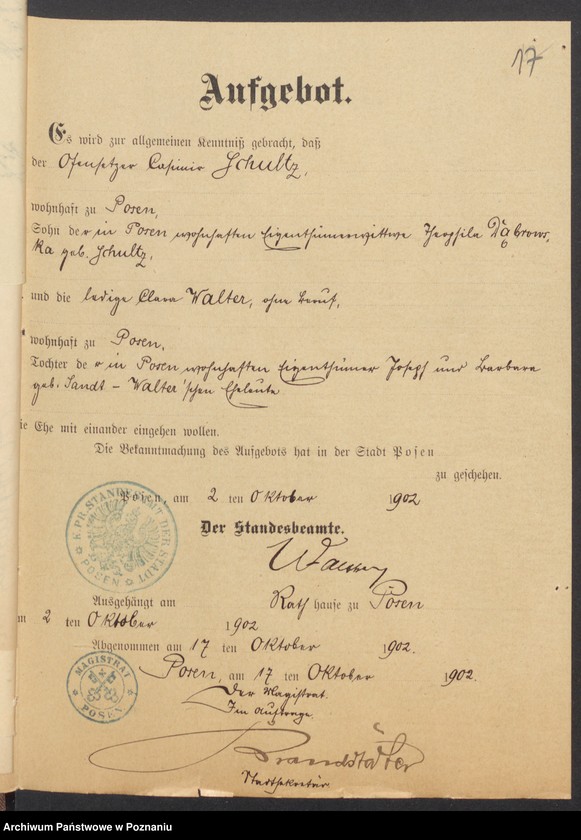 17
Aufgebot.
Es wird zur allgemeinen Kenntniß gebracht, daß
der Ofensetzer Casimir Schultz,
wohnhaft zu Posen,
Sohn der in Posen wohnhaften Eigenthümerwittwe Theophila Dąbrows-
ka geb. Schultz,
und die ledige Clara Walter, ohne Beruf,
wohnhaft zu Posen,
Tochter der in Posen wohnhaften Eigenthümer Joseph und Barbara
geb. Sandt - Walter'schen Eheleute
ie Ehe mit einander eingehen wollen.
Die Bekanntmachung des Aufgebots hat in der Stadt Posen
zu geschehen.
Posen, am 2 ten Oktober 1902
Der Standesbeamte.
K. PR. STANDESAMT DER STADT POSEN
Ausgehängt am Rathhause zu Posen
m 2 ten Oktober 1902
Abgenommen am 17 ten Oktober 1902.
Posen, am 17 ten Oktober 1902.
MAGISTRAT POSEN
Der Magistrat.
Im Auftrage.
Brandstädter
Stadtsekretär.
Archiwum Państwowe w Poznaniu
szukajwarchiwach.gov.pl